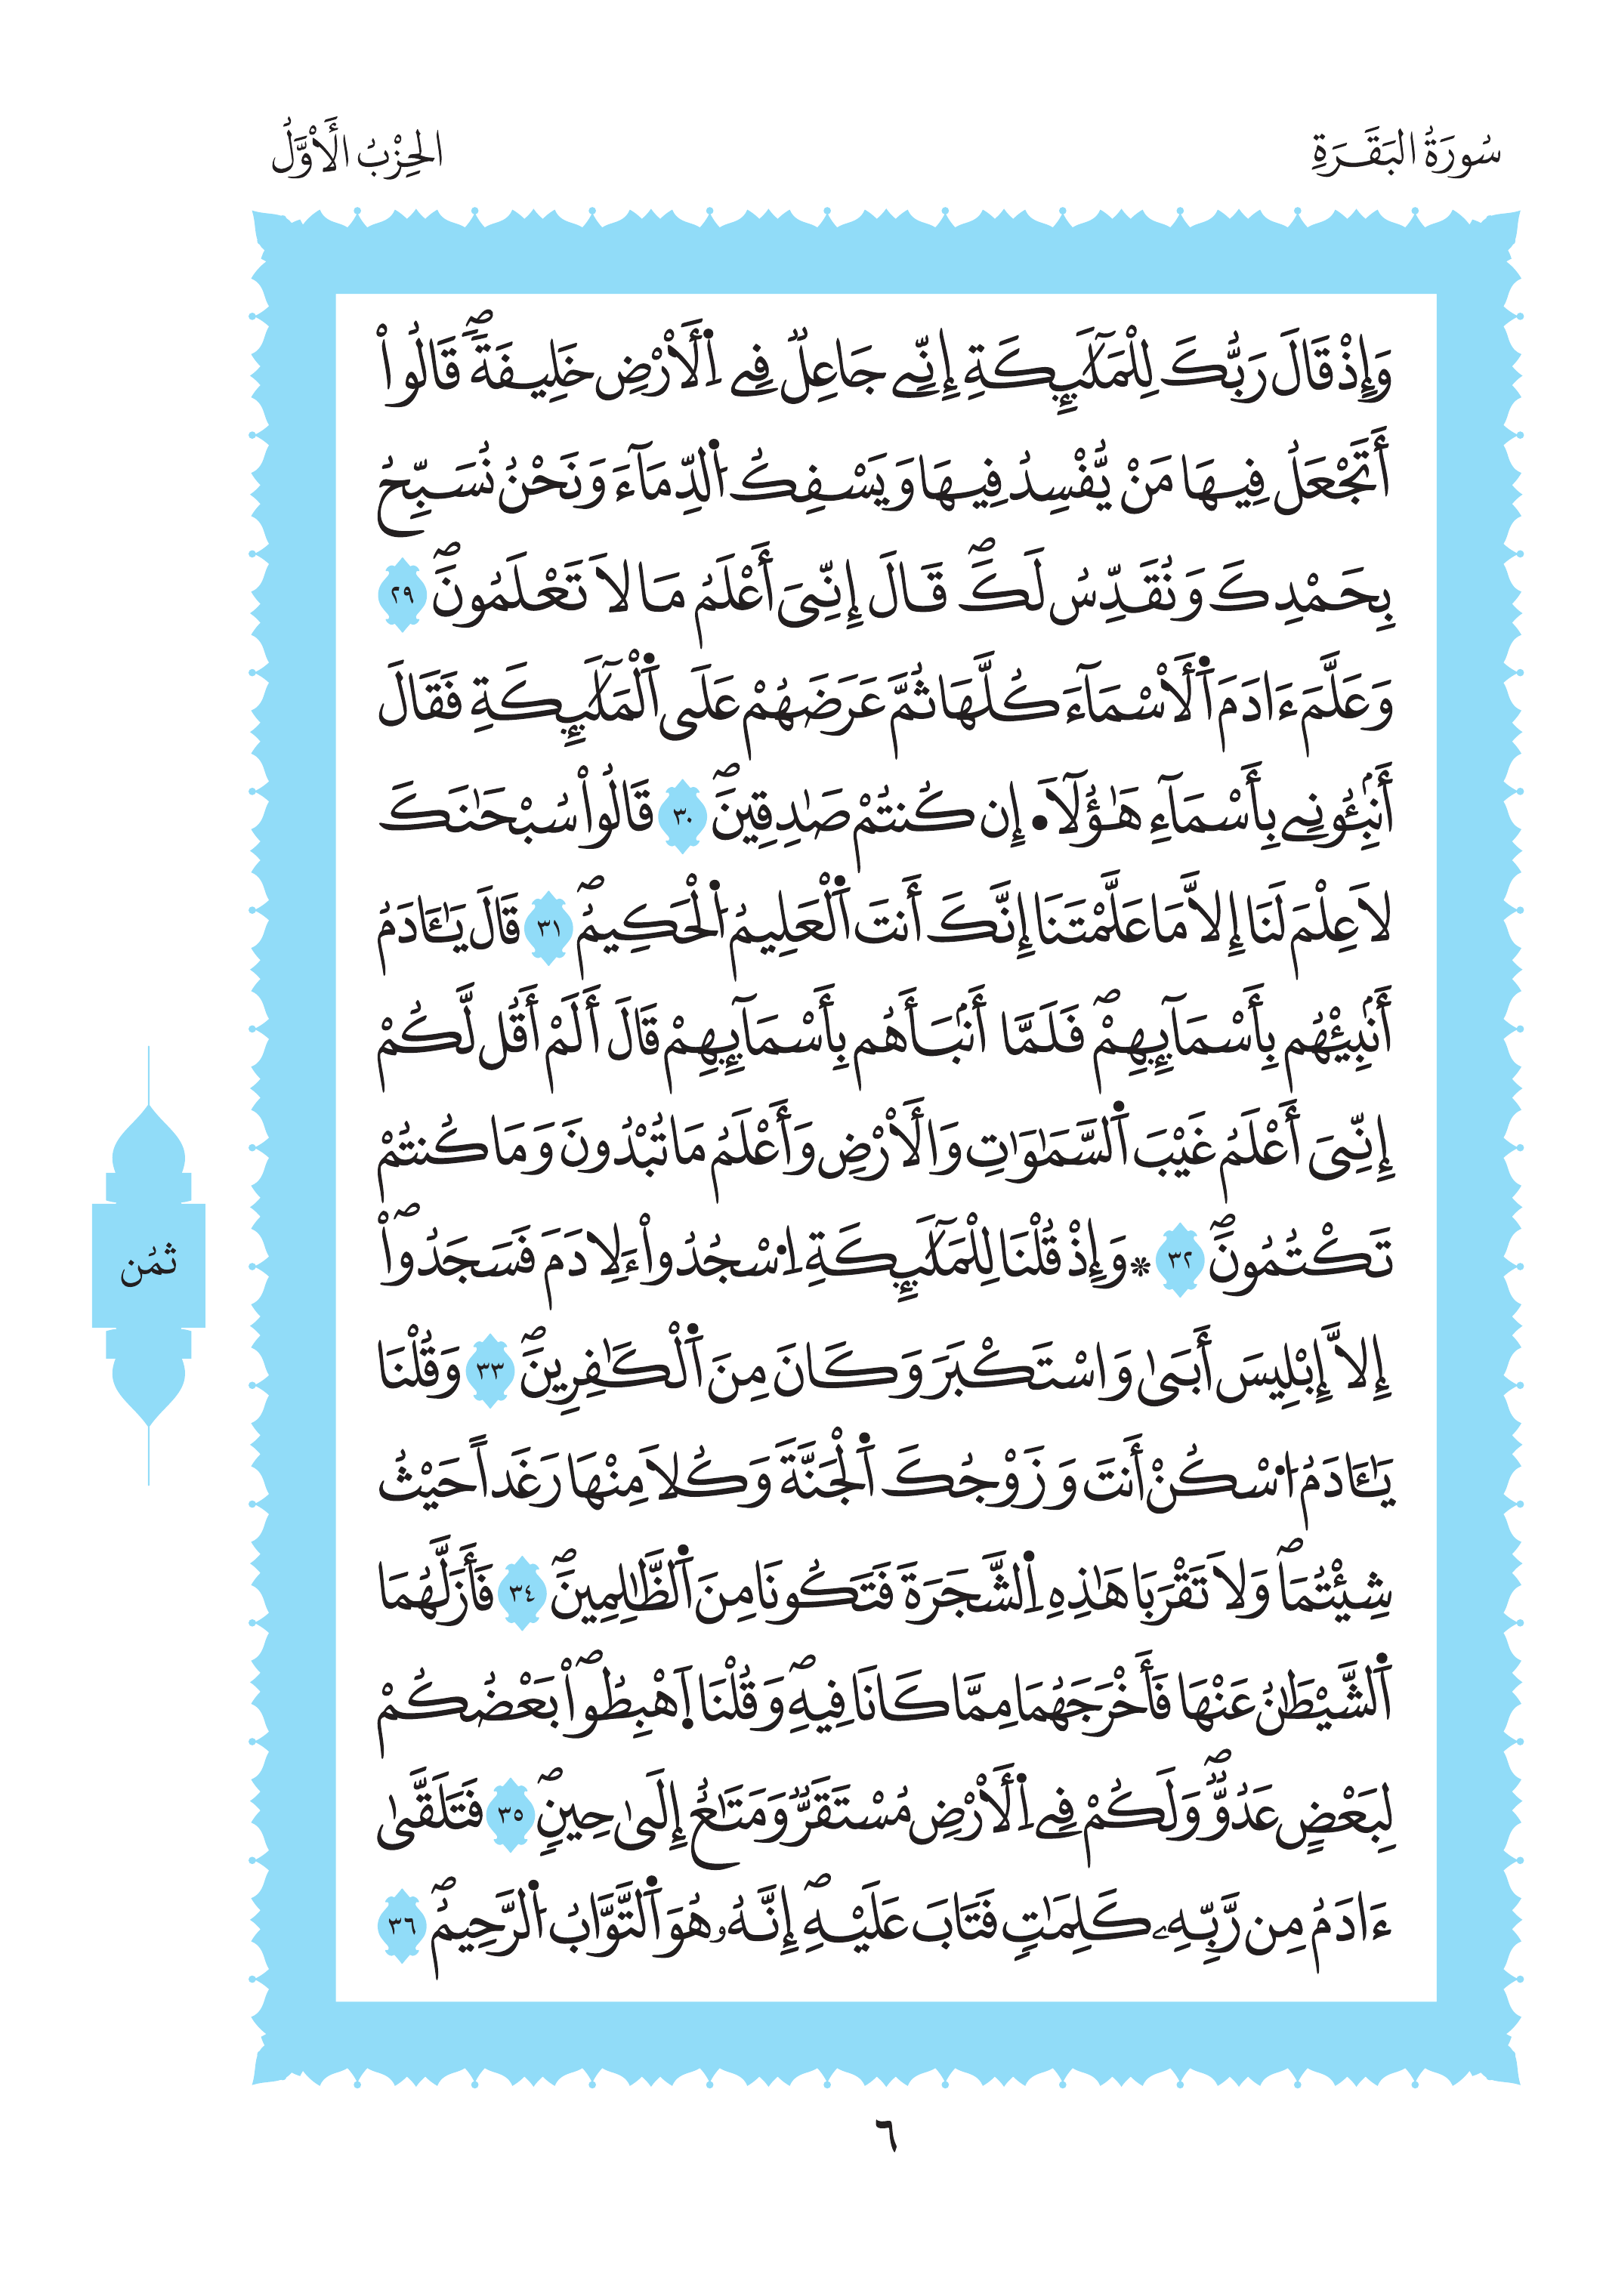 سُورَةُ البَقَرَةِ
الحِزْبُ الَأوَّلُ
وَإِذْ قَالَ رَبُّكَ لِلْمَلَٰٓئِكَةِ إِنِّے جَاعِلٞ فِے اِ۬لَارْضِ خَلِيفَةٗۖ قَالُوٓاْ
أَتَجْعَلُ فِيهَا مَنْ يُّفْسِدُ فِيهَا وَيَسْفِكُ اُ۬لدِّمَآءَ وَنَحْنُ نُسَبِّحُ
بِحَمْدِكَ وَنُقَدِّسُ لَكَۖ قَالَ إِنِّيَ أَعْلَمُ مَا لَا تَعْلَمُونَۖ ٢٩
وَعَلَّمَ ءَادَمَ اَ۬لَاسْمَآءَ كُلَّهَا ثُمَّ عَرَضَهُمْ عَلَى اَ۬لْمَلَٰٓئِكَةِ فَقَالَ
أَنۢبِـُٔونِے بِأَسْمَآءِ هَٰٓؤُلَآ. إِن كُنتُمْ صَٰدِقِينَۖ ٣٠ قَالُواْ سُبْحَٰنَكَ
لَا عِلْمَ لَنَآ إِلَّا مَا عَلَّمْتَنَآ إِنَّكَ أَنتَ اَ۬لْعَلِيمُ اُ۬لْحَكِيمُۖ ٣١ قَالَ يَٰٓـَٔادَمُ
أَنۢبِئْهُم بِأَسْمَآئِهِمْۖ فَلَمَّآ أَنۢبَأَهُم بِأَسْمَآئِهِمْ قَالَ أَلَمْ أَقُل لَّكُمْ
إِنِّيَ أَعْلَمُ غَيْبَ اَ۬لسَّمَٰوَٰتِ وَالَارْضِ وَأَعْلَمُ مَا تُبْدُونَ وَمَا كُنتُمْ
تَكْتُمُونَۖ ٣٢ * وَإِذْ قُلْنَا لِلْمَلَٰٓئِكَةِ اِ۟سْجُدُواْ ءِلَادَمَ فَسَجَدُوٓاْۖ
إِلَّآ إِبْلِيسَ أَبَىٰ وَاسْتَكْبَرَ وَكَانَ مِنَ اَ۬لْكَٰفِرِينَۖ ٣٣ وَقُلْنَا
يَٰٓـَٔادَمُ اُ۟سْكُنْ أَنتَ وَزَوْجُكَ اَ۬لْجَنَّةَ وَكُلَا مِنْهَا رَغَداً حَيْثُ
شِئْتُمَاۖ وَلَا تَقْرَبَا هَٰذِهِ اِ۬لشَّجَرَةَ فَتَكُونَا مِنَ اَ۬لظَّٰلِمِينَۖ ٣٤ فَأَزَلَّهُمَا
اَ۬لشَّيْطَٰنُ عَنْهَا فَأَخْرَجَهُمَا مِمَّا كَانَا فِيهِۖ وَقُلْنَا اَ۪هْبِطُواْۖ بَعْضُكُمْ
لِبَعْضٍ عَدُوّٞۖ وَلَكُمْ فِے اِ۬لَارْضِ مُسْتَقَرّٞ وَمَتَٰعٌ إِلَىٰ حِينٖۖ ٣٥ فَتَلَقَّىٰٓ
ءَادَمُ مِن رَّبِّهِۦ كَلِمَٰتٖ فَتَابَ عَلَيْهِۖ إِنَّهُۥ هُوَ اَ۬لتَّوَّابُ اُ۬لرَّحِيمُۖ ٣٦
ثمُن
٦